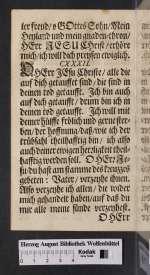 ter freud/ o GOttes Sohn/ Mein
Heyland und mein gnaden-thron/
HErr JESU Christ/ erhöre
mich/ ich will dich preysen ewiglich.
CXXXII.
O HErr JEsu Christe/ alle die
auf dich getaufft sind/ die sind in
deinen tod getaufft. Ich bin auch
auf dich getaufft/ drum bin ich in
deinen tod getaufft. Ich will mit
deiner hülffe frölich und gerne ster-
ben/ der hoffnung/ daß/ wie ich der
trübsahl theilhafftig bin/ ich also
auch deiner ewigen herrlichkeit theil-
hafftig werden soll. O HErr JE-
su du hast am stamme des kreutzes
gebeten: Vater/ verzeyhe ihnen.
Also verzeyhe ich allen/ die wider
mich gehandelt haben/ auf daß du
mir alle meine sünde verzeyhest.
O HErr
Herzog August Bibliothek Wolfenbüttel
Kodak